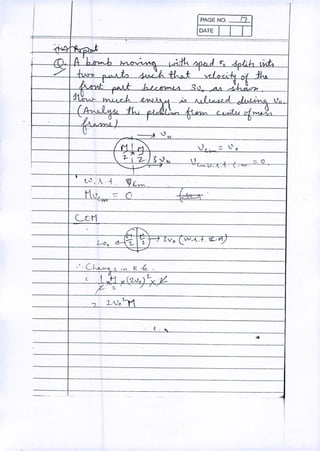 PAGE NO. 17.
DATE
Q. A bomb moving with speed v₀ splits into
two parts such that velocity of the
front part becomes 3v₀ as shown.
How much energy is released during
(Analyse the problem from centre of mass
frame)
→ v₀
M/2 M/2 → 3v₀
Vcm = v₀
Vcm w.r.t cm = 0.
w.r.t. cm
MVcm = 0
CCM
2v₀ ← M/2 M/2 → 2v₀ (w.r.t.
∴ Change in K.E.
= 1/2 × M/2 × (2v₀)² × 2
= 2v₀²M